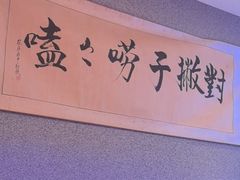 對撇子唠々嗑